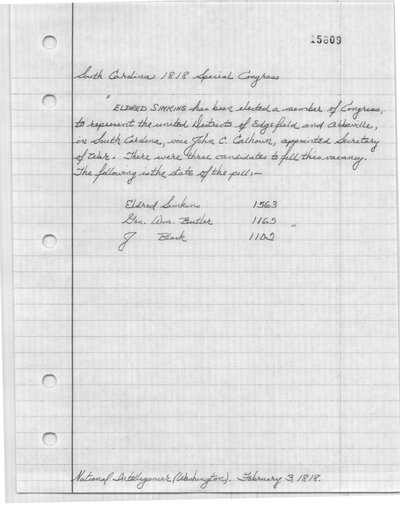 15809
South Carolina 1818 Special Congress
"ELDRED SIMKINS has been elected a member of Congress,
to represent the united Districts of Edgefield and Abbeville,
in South Carolina, vice John C. Calhoun, appointed Secretary
of War. There were three candidates to fill this vacancy.
The following is the state of the poll:—
Eldred Simkins 1563
Gen. Wm. Butler 1165
J Black 1102 "
National Intelligencer (Washington). February 3, 1818.